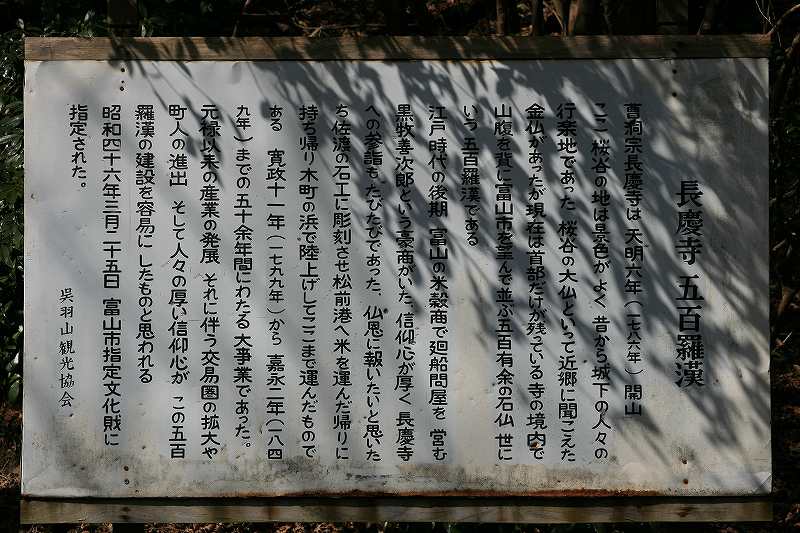 長慶寺 五百羅漢
曹洞宗長慶寺は 天明六年(一七八六年) 開山
ここ 桜谷の地は景色がよく 昔から城下の人々の
行楽地であった 桜谷の大仏といって近郷に聞こえた
金仏があったが現在は首部だけが残っている寺の境内で
山腹を背に富山市を望んで並ぶ五百有余の石仏 世に
いう 五百羅漢である
江戸時代の後期 富山の米穀商で廻船問屋を 営む
黒牧善次郎という豪商がいた、信仰心が厚く 長慶寺
への参詣も、たびたびであった、仏恩に報いたいと思いた
ち佐渡の石工に彫刻させ松前港へ米を運んだ帰りに
持ち帰り木町の浜で陸上げしてここまで運んだもので
ある 寛政十一年(一七九九年)から 嘉永二年(一八四
九年)までの五十余年間にわたる 大事業であった。
元禄以来の産業の発展 それに伴う交易圏の拡大や
町人の進出 そして人々の厚い信仰心が この五百
羅漢の建設を容易に したものと思われる
昭和四十六年三月二十五日 富山市指定文化財に
指定された。
呉羽山観光協会